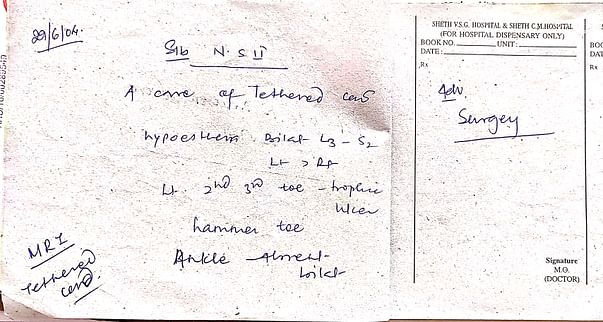 29/6/04.
S/b N.S II
A case of Tethered cord
hypoesthesia Bilat L3 - S2
Lt > Rt
Lt. 2nd 3rd toe - trophic
ulcer
hammer toe
Ankle - Absent -
bilat
MRI
Tethered
cord.
SHETH V.S.G. HOSPITAL & SHETH C.M.HOSPITAL
(FOR HOSPITAL DISPENSARY ONLY)
BOOK NO. UNIT:
DATE:
Rx
Adv.
Surgery
Signature
M.O.
(DOCTOR)
Rx